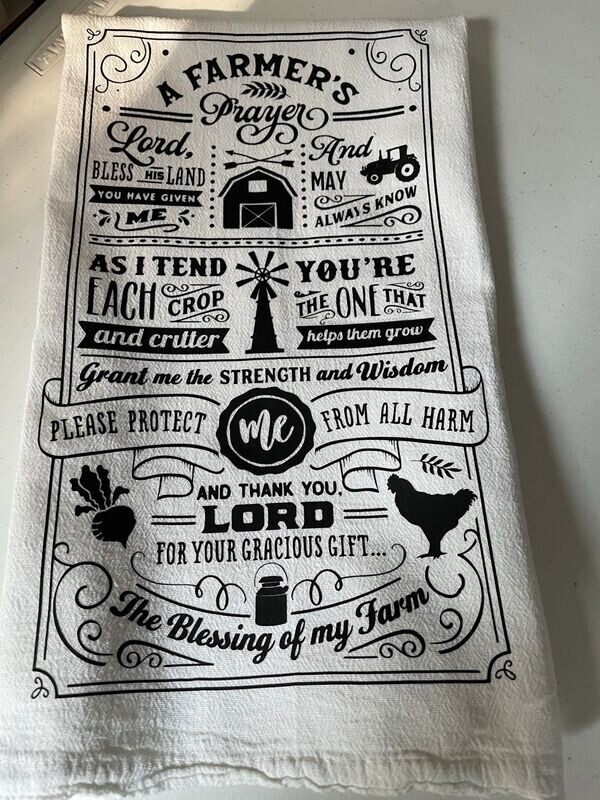 A FARMER'S
Prayer
Lord,
BLESS HIS LAND
YOU HAVE GIVEN
ME
And
MAY
ALWAYS KNOW
AS I TEND
EACH CROP
and critter
YOU'RE
THE ONE THAT
helps them grow
Grant me the STRENGTH and Wisdom
PLEASE PROTECT me FROM ALL HARM
AND THANK YOU,
LORD
FOR YOUR GRACIOUS GIFT...
The Blessing of my Farm